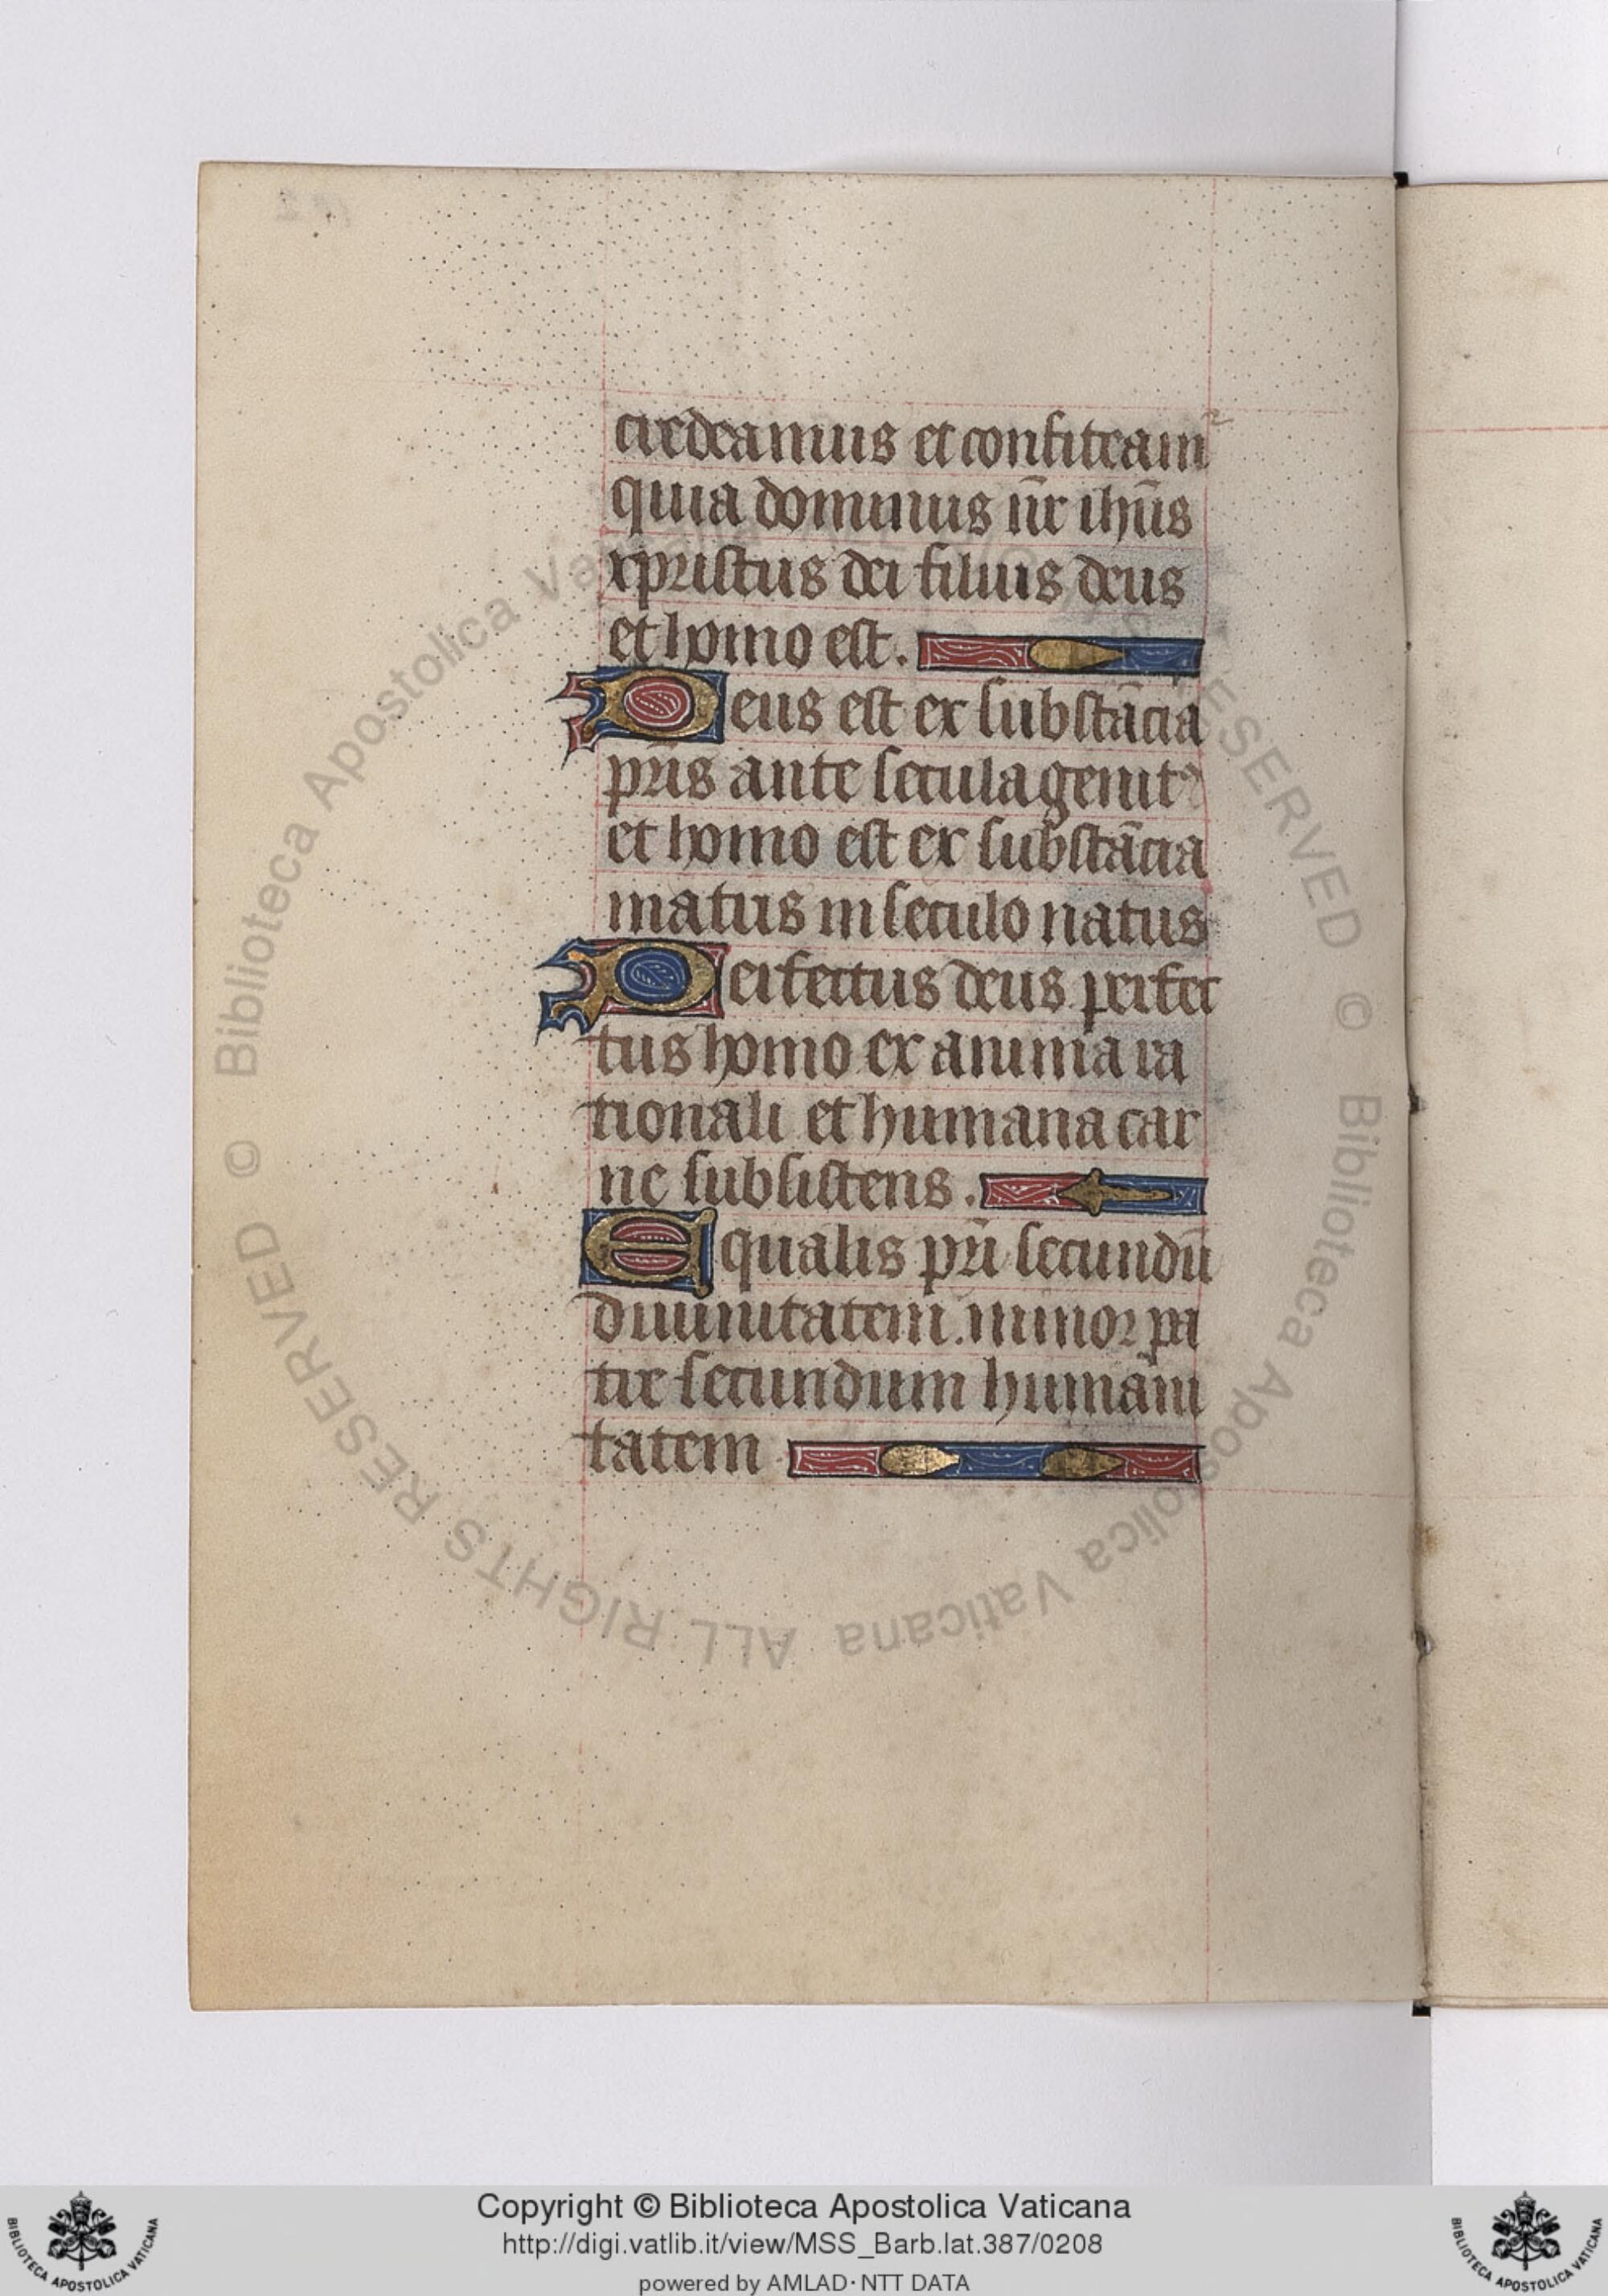 credeamus et confiteam²
quia dominus nr̄ ihūs
xpristus dei filius deus
et homo est.
Deus est ex substācia
pr̄is ante secula genit⁹
et homo est ex substācia
matus in seculo natus
Perfectus deus perfec
tus homo ex anima ra
tionali et humana car
ne subsistens.
Equalis pr̄i secundū
diuinitatem. minor pa
tre secundum humāni
tatem
© Biblioteca Apostolica Vaticana ALL RIGHTS RESERVED
© Biblioteca Apostolica Vaticana ALL RIGHTS RESERVED
Copyright © Biblioteca Apostolica Vaticana
http://digi.vatlib.it/view/MSS_Barb.lat.387/0208
powered by AMLAD·NTT DATA
BIBLIOTECA APOSTOLICA VATICANA
BIBLIOTECA APOSTOLICA VATICANA